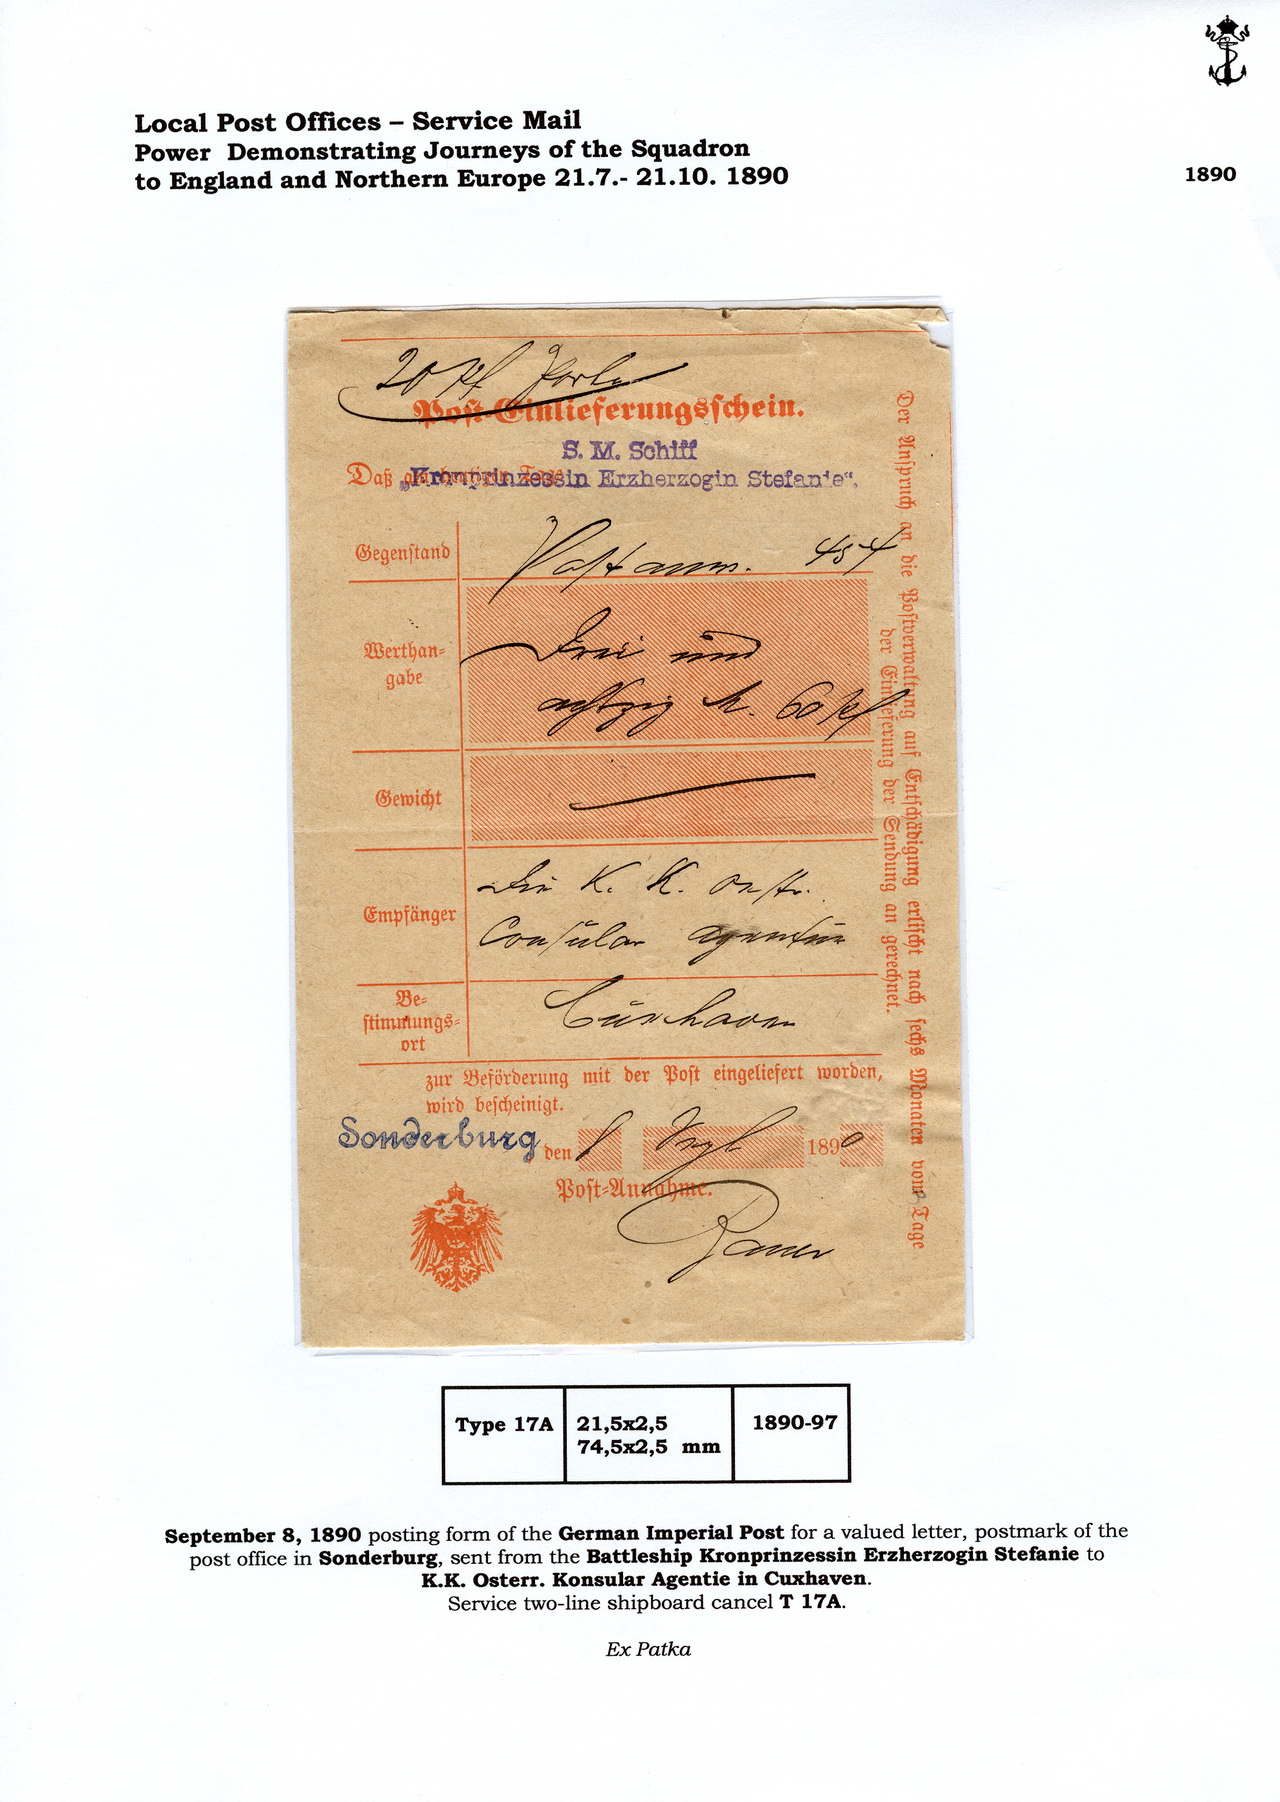 Local Post Offices – Service Mail
Power Demonstrating Journeys of the Squadron
to England and Northern Europe 21.7.- 21.10. 1890
1890
20 Pf Porto
Post-Einlieferungsschein.
S. M. Schiff
Daß am heutigen Tage
„Kronprinzessin Erzherzogin Stefanie“,
Gegenstand
Postanw. 454
Werthan-
gabe
Drei und
achtzig M. 60 Pf
Gewicht
Empfänger
Die K. K. oestr.
Consular agentur
Be-
stimmungs-
ort
Cuxhaven
zur Beförderung mit der Post eingeliefert worden,
wird bescheinigt.
Sonderburg den 8 Sept 1890
Post-Annahme.
Der Anspruch an die Postverwaltung auf Entschädigung erlischt nach sechs Monaten vom Tage
der Einlieferung der Sendung an gerechnet.
Type 17A
21,5x2,5
74,5x2,5 mm
1890-97
September 8, 1890 posting form of the German Imperial Post for a valued letter, postmark of the
post office in Sonderburg, sent from the Battleship Kronprinzessin Erzherzogin Stefanie to
K.K. Osterr. Konsular Agentie in Cuxhaven.
Service two-line shipboard cancel T 17A.
Ex Patka